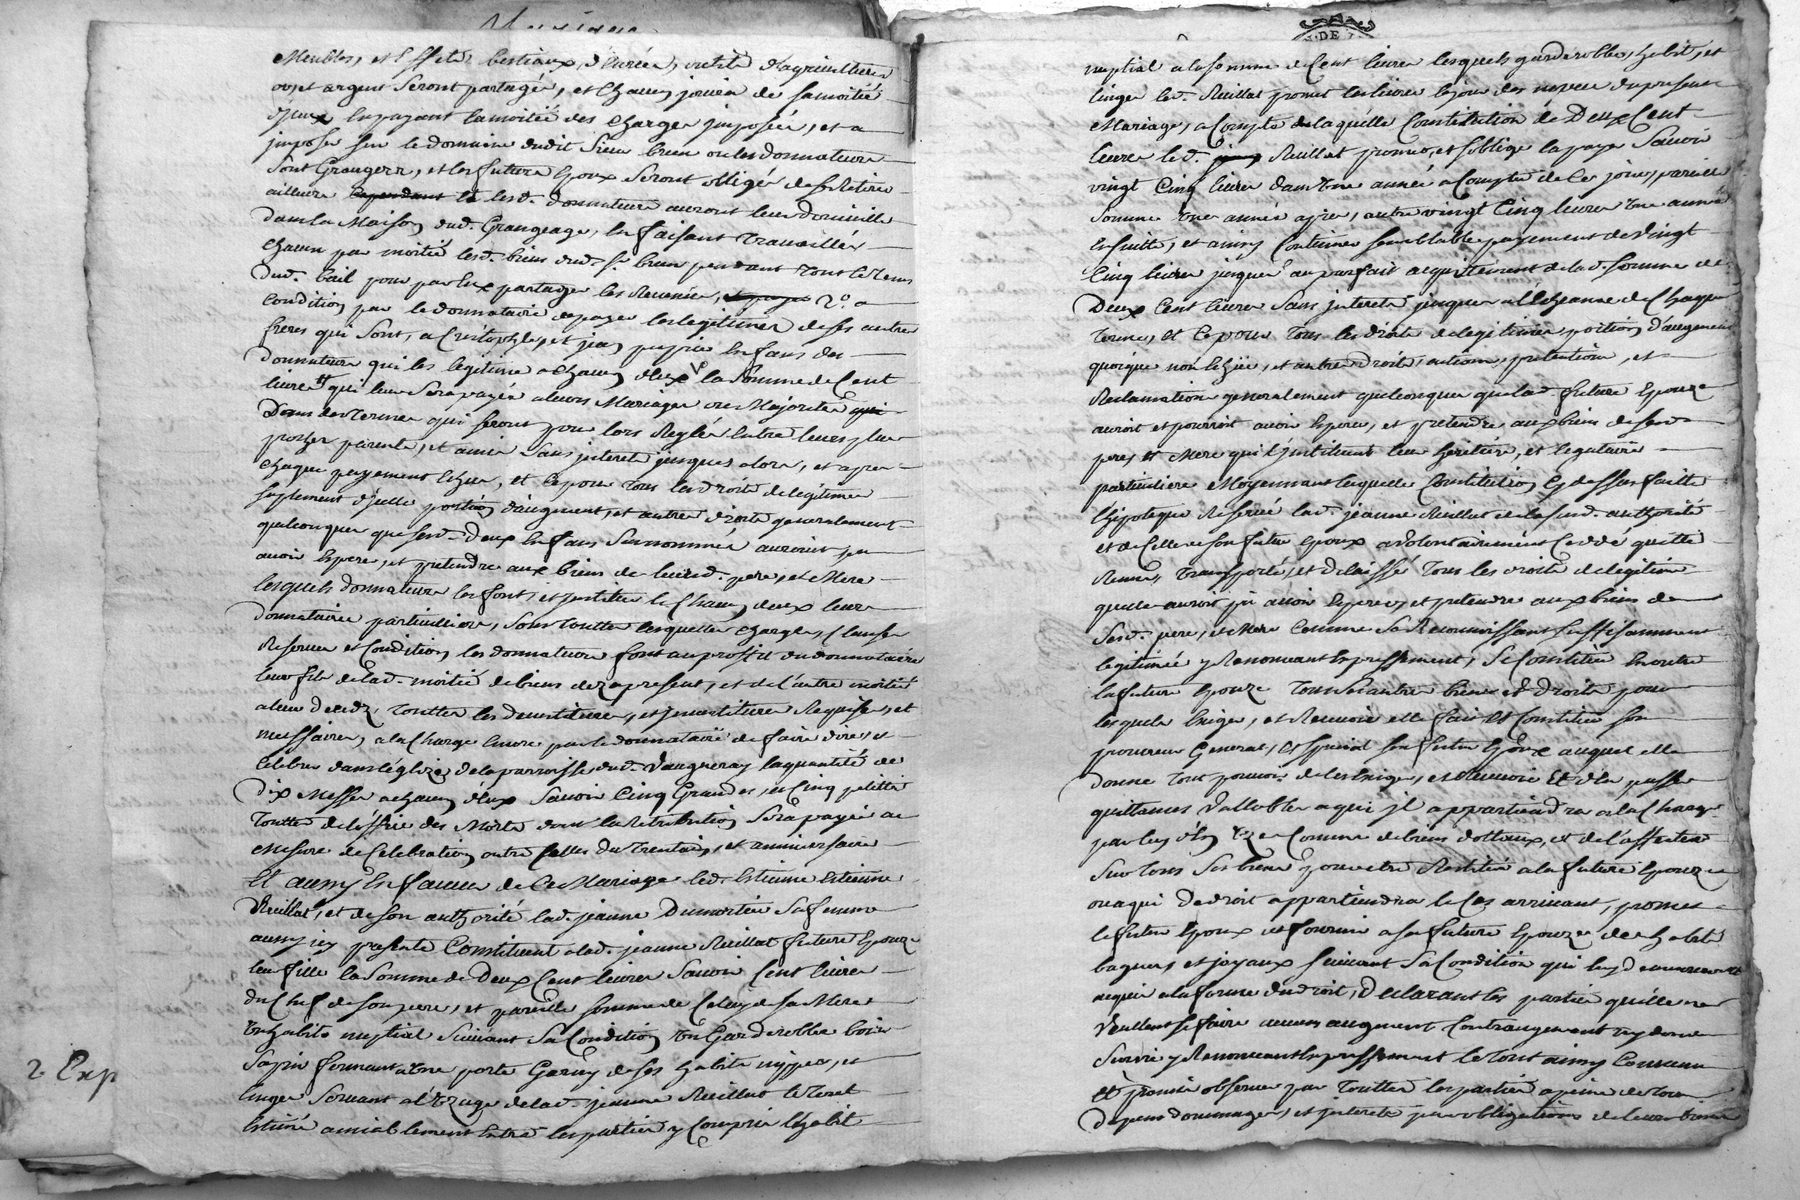 Meubles, et Effets bestiaux, d'anrée, outils d'agriculture
or, et argent Seront partagés, et chacun jouira de sa moitié
d'jceux En payant la moitié des charges jmposées, et a
jmposer sur le domaine dudit Sieur brun ou les donnateurs
Sont Grangers, et les futurs Epoux Seront obligés de se Retirer
ailleurs cependant et lesd. donnateurs auront leur domicille
dans la Maison dud. Grangeage, En faisant travailler
chacun par moitié lesd. biens dud. Sr. brun pendant tout le tems
dud. bail pour par Eux partager les Revenus, 2°. a
Condition par le donnataire de payer les legitimes de ses autres
freres qui Sont, a Cristophle, et jean Enfans des
donnateurs qui les legitime a chacun d'Eux la Somme de Cent
livres qui leur Sera payée a leurs Mariages ou Majorités
Dans des termes qui seront pour lors Reglés Entre leurs plus
proches parents, et amis Sans jnterets jusques alors, et apres
chaque payement Echeu, et Ce pour tous les droits de legitimes
suplement d'jcelle portion d'augment, et autres droits generalement
quelconques que sesd. Deux Enfans Surnommés auroient pu
avoir Esperer, et pretendre aux biens de leursd. pere, et Mere
lesquels donnateurs les font, et jnstitue le chacun d'eux leurs
donnataires particulliers, Sous touttes lesquelles charges, Clauses
Reserves et Conditions les donnateurs font au profit du donnataire
leur fils de lad. moitié de biens dez a present, et de l'autre moitié
a leur decedz, touttes les demissions, et jnvestitures Requises, et
nessaires, a la Charge Encore par le donnataire de faire dire, et
Celebrer dans l'églize de la parroisse dud. Vaugneray la quantité de
Dix Messes a chacun d'Eux Savoir Cinq Grandes, et Cinq petittes
touttes de l'office des Morts dont la Retribution Sera payée a
Mesure de Celebration outre Celles du trentain, et anniversaire
Et aussy En faveur de Ce Mariage led. Estienne
Reillat, et de son authorité lad. jeanne Dumortier Sa femme
aussy jcy presente Constituent a lad. jeanne Reillat future Epouze
leur fille la Somme de Deux Cent livres Savoir Cent livres
du Chef de son pere, et pareille somme de Celuy de Sa Mere
un habits nuptial Suivant Sa Condition un Garderobbe bois
Sapin fermant a une porte Garny de ses habits nippes, et
linges Servant a l'uzage de lad. jeanne Reillat le tout
Estimé amiablement Entre les parties y Compris l'habit
2 Exp
nuptial a la somme de Cent livres lesquels garderobbe, habits, et
linges led. Reillat promet les livrer le jour des noces du present
Mariage, a Compte de laquelle Constitution de Deux Cent
livres led. Reillat promet, et s'oblige la payer Savoir
vingt Cinq livres dans une année a Compter de Ce jour, pareille
Somme une année apres, autre vingt Cinq livres une année
Ensuitte, et ainsy Continuer semblable payement de Vingt
Cinq livres jusques au parfait acquittement de lad. Somme de
Deux Cent livres Sans jnterets jusques a l'Echeance de Chaque
terme, Et Ce pour tous les droits de legitimes, portion d'augment
quoique non Echus, et autres droits, actions, pretentions, et
Reclamation generalement quelconques que lad. future Epouze
auroit et pourroit avoir Esperer, et pretendre aux biens de sesd.
pere, et Mere qui l'jnstituent leur heritiere, et legataire
particuliere Moyennant laquelle Constitution Cy dessus faitte
l'hipoteque Reservé lad. jeanne Reillat de la susd. authorité
et de Celle de son futur Epoux a volontairement Ceddé quitté
Remis, transporté, et Delaissé tous les droits de legitime
quelle auroit pu avoir Esperer, et pretendre aux biens de
Sesd. pere, et Mere Comme Sa Reconnoissant suffisamment
legitimée y Renonceant Expressement, Se Constitue En outre
la future Epouze tous ses autres biens et droits pour
lesquels Exiger, et Recevoir elle fait Et Constitue son
procureur General, et special son futur Epoux auquel elle
donne tout pouvoir de les Exiger, et Recevoir Et d'En passer
quittances Vallables a qui jl appartiendra a la Charge
par luy d'En uzer Comme de biens dottaux, et de l'assurer
Sur tous Ses biens pour etre Restitué a la future Epouze
ou a qui de droit appartiendra le Cas arrivant, promet
le futur Epoux et fournir a sa future Epouze de habits
bagues et joyaux Suivant Sa Condition qui luy demeureront
acquis a la forme du droit, Declarant les parties quelle ne
Veullent se faire aucuns augment Contraugement ny donne
Survie y Renonceant Expressement le tout ainsy Convenu
Et promis observer par touttes les parties a peine de tous
Depens dommages, et jnterets par obligations de leurs biens